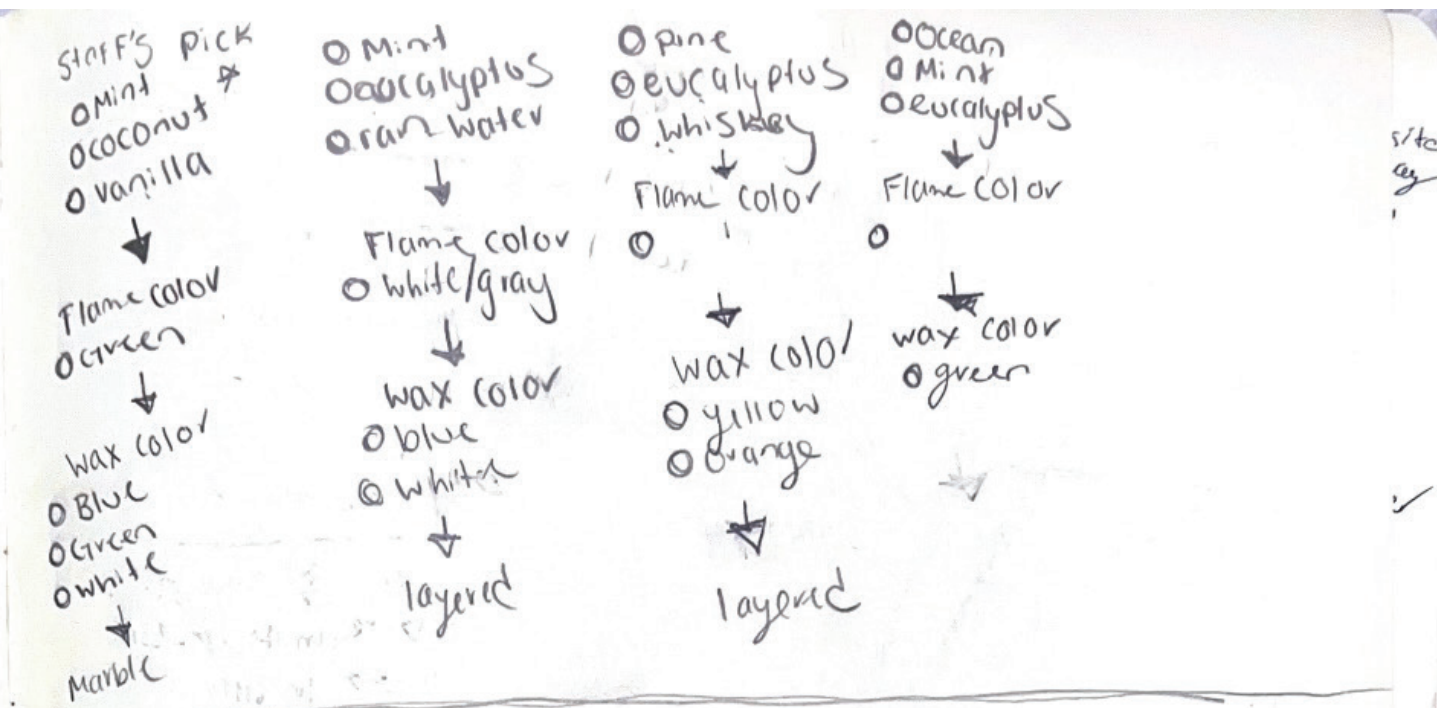 Staff's pick
Mint
coconut
vanilla
Flame color
Green
wax color
Blue
Green
white
Marble
Mint
eucalyptus
water
Flame color
white/gray
wax color
blue
white
layered
pine
eucalyptus
whiskey
Flame color
wax color
yellow
orange
layered
Ocean
Mint
eucalyptus
Flame color
wax color
green